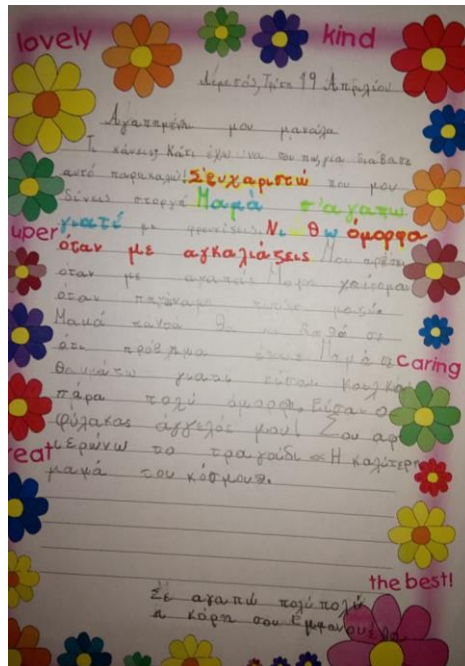 lovely
kind
Τρίτη 19 Απριλίου
Αγαπημένη μου μανούλα
Τι κάνεις; Κάτι έχω να σου πω, για διάβασε
αυτό παρακαλώ! Σ'ευχαριστώ που μου
δίνεις στοργή Μαμά σ'αγαπώ
γιατί με φροντίζεις. Νιώθω όμορφα
uper
όταν με αγκαλιάζεις. Μου αρέσει
όταν με αγαπάς. Μαμά χαίρομαι
όταν πηγαίναμε μαζί
Μαμά πάντα θα σε
ότι πρόβλημα έχεις Μαμά σε
Caring
θαυμάζω γιατί είσαι καλή και
πάρα πολύ όμορφη. Είσαι ο
φύλακας άγγελός μου! Σου αφ
reat
ιερώνω το τραγούδι «Η καλύτερη
μαμά του κόσμου».
the best!
Σε αγαπώ πολύ πολύ
η κόρη σου Εμμανουέλα